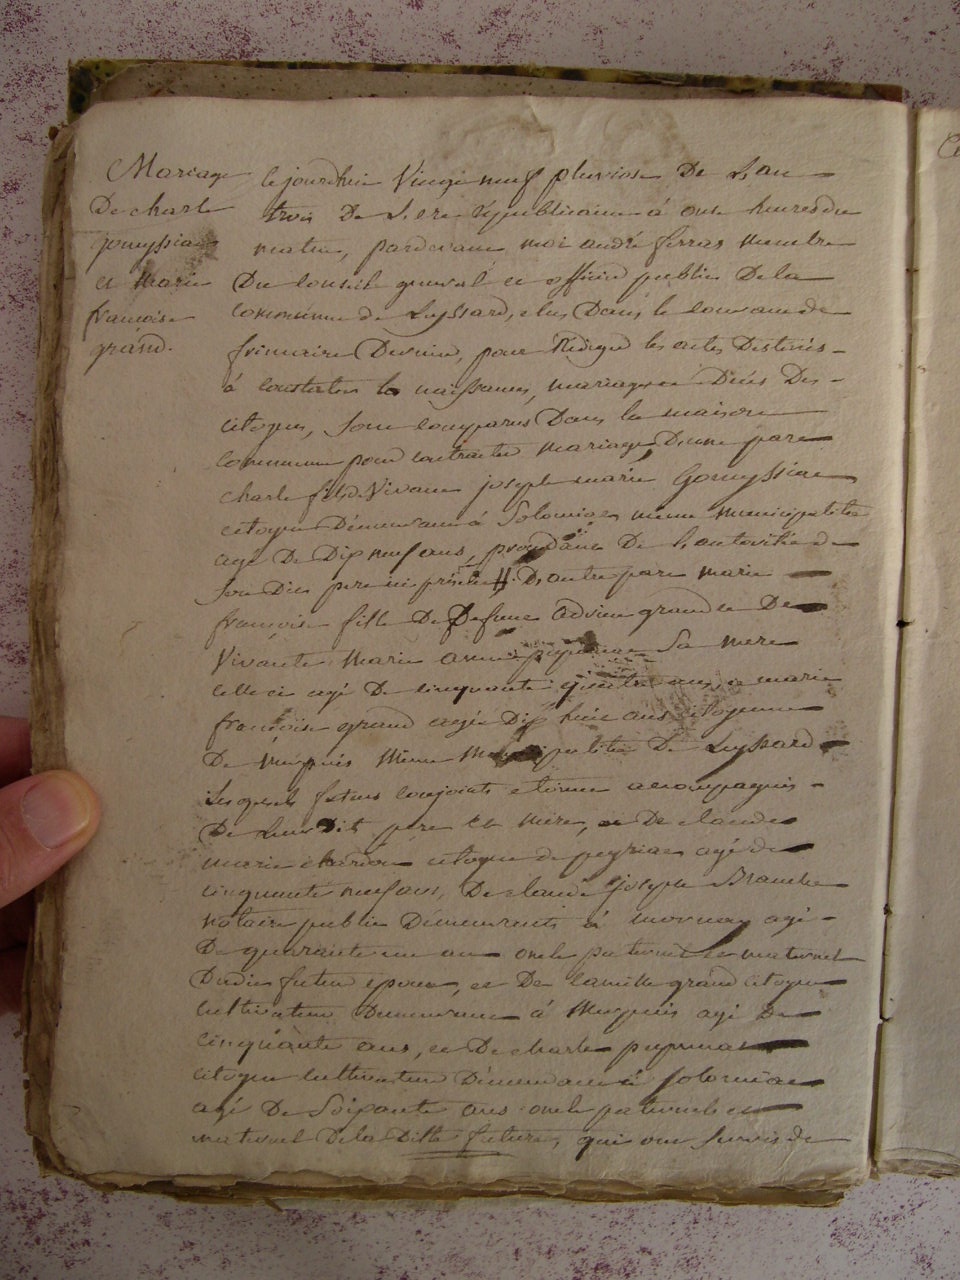 Mariage
De charle
gomyssian
et marie
francoise
grand.
le jourdhui Vingt neuf pluviose De Lan
trois De L ere republicaine à onze heures du
matin, pardevant moi andré ferras membre
Du Conseil general et officier public De la
commune de Leyssard, elu Dans le courant de
frimaire Dernier, pour Rediger les actes Destinés
à Constater les naissances, mariages et Décés Des
citoyens, Sont comparus Dans la maison
commune pour contracter mariage, D'une part
charle fils de Vivant joseph marie Gomyssian
citoyen Demeurant à Solomiac même municipalité
agé De Dix neuf ans, De L autorité de
Son Dit pere D'autre part marie
francoise fille De Defunt grand et De
Vivante Marie anne Sa mere
celle ci agé De cinquante quatre ans, et marie
francoise grand agée Dix huit ans citoyenne
De même municipalité De Leyssard
Lesquels futurs conjoints etoient accompagnés
De Leur Dit pere et mere, et De claude
marie citoyen de peyriac agé de
cinquante neuf ans, De claude joseph
notaire public Demeurant à mornay agé
De quarante un ans oncle paternel et maternel
Dudit futur epoux, et De Camille grand citoyen
cultivateur Demeurant à agé De
cinquante ans, et De charle
citoyen cultivateur Démeurant à Solomiac
agé De Soixante ans oncle paternel et
maternel De la Ditte future, qui ont